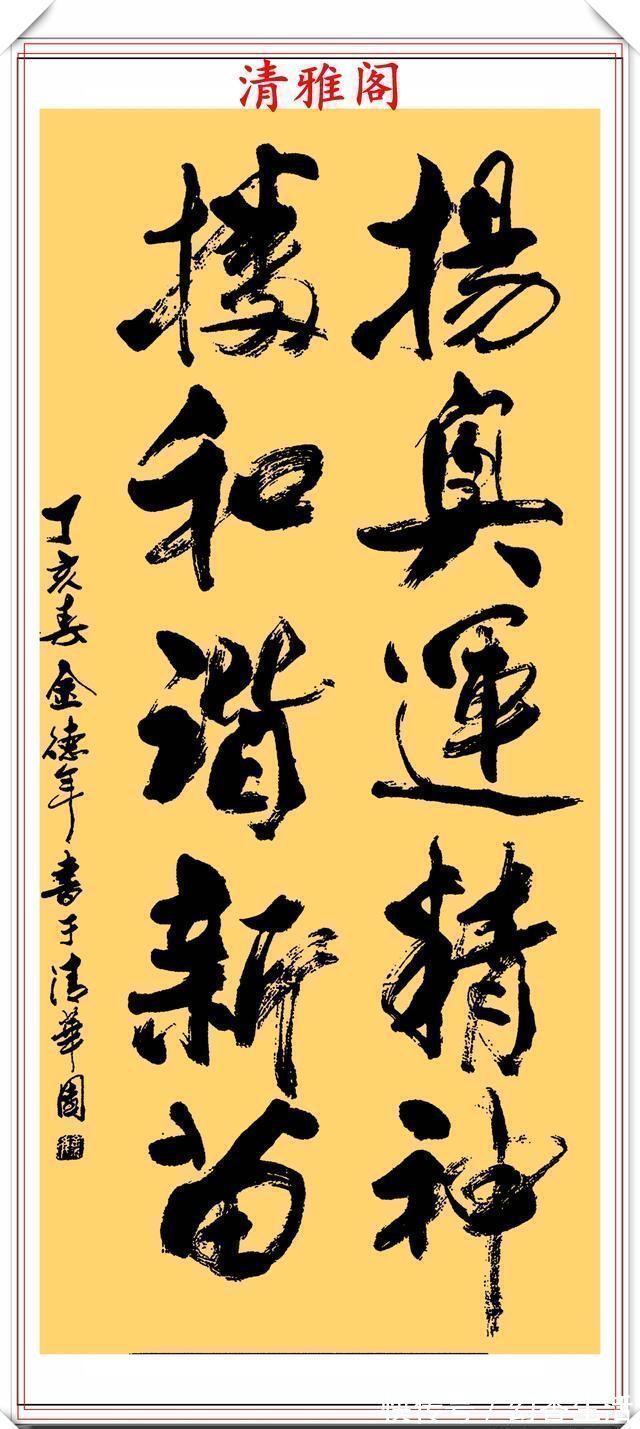 清雅阁
揚奧運精神
播和諧新苗
丁亥春金德年書于清華園